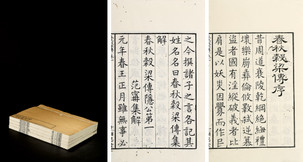 春秋穀梁傳序
昔周道衰陵乾綱絕紐禮
壞樂崩彝倫攸斁弒逆篡
盜者國有淫縱破義者比
肩是以妖災因釁而作民
之今撰諸子之言各記其
姓名名曰春秋穀梁傳集
解
春秋穀梁傳隱公第一
范甯集解
元年春王正月雖無事必